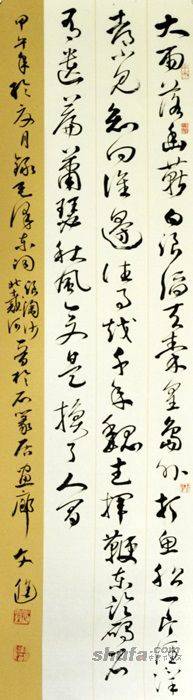 大雨落幽燕白浪滔天秦皇島外打魚船一片汪洋
都不見知向誰邊往事越千年魏武揮鞭東臨碣石
有遺篇蕭瑟秋風今又是換了人間
甲午年於 月錄毛澤東詞浪淘沙北戴河 於石篆居画廊 文進
shufa.com